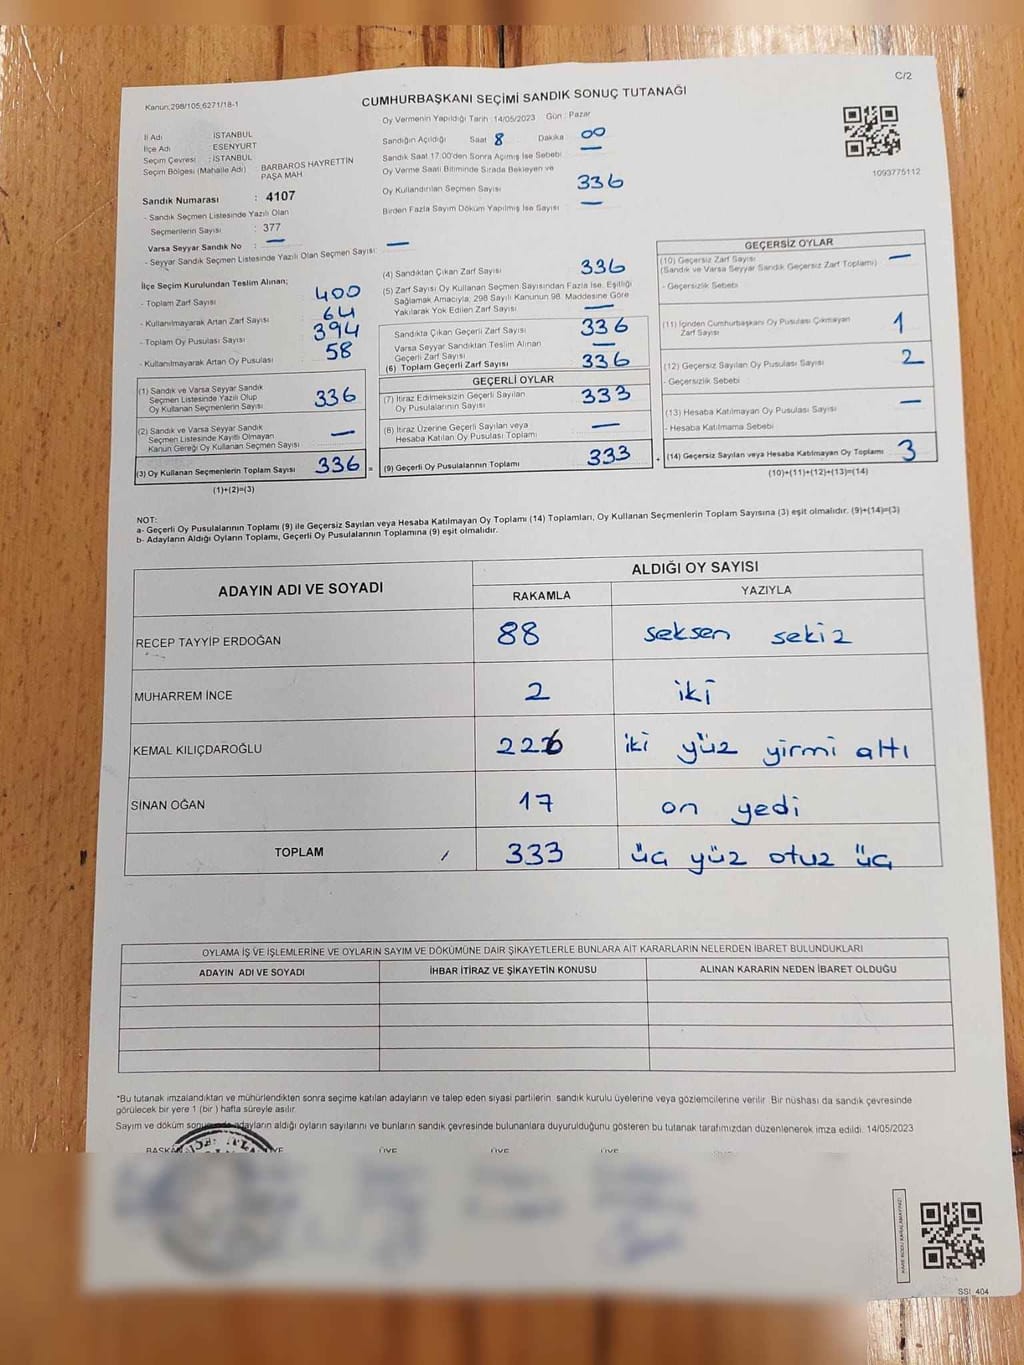 C/2
Kanun;298/105,6271/18-1
CUMHURBAŞKANI SEÇİMİ SANDIK SONUÇ TUTANAĞI
Oy Vermenin Yapıldığı Tarih :14/05/2023 Gün : Pazar
İl Adı : İSTANBUL
İlçe Adı : ESENYURT
Seçim Çevresi : İSTANBUL
Seçim Bölgesi (Mahalle Adı) BARBAROS HAYRETTİN PAŞA MAH
Sandık Numarası : 4107
- Sandık Seçmen Listesinde Yazılı Olan
Seçmenlerin Sayısı : 377
Varsa Seyyar Sandık No : —
- Seyyar Sandık Seçmen Listesinde Yazılı Olan Seçmen Sayısı: —
Sandığın Açıldığı Saat 8 Dakika 00
Sandık Saat 17.00'den Sonra Açılmış İse Sebebi —
Oy Verme Saati Bitiminde Sırada Bekleyen ve
Oy Kullandırılan Seçmen Sayısı 336
Birden Fazla Sayım Döküm Yapılmış İse Sayısı —
1093775112
İlçe Seçim Kurulundan Teslim Alınan;
- Toplam Zarf Sayısı 400
- Kullanılmayarak Artan Zarf Sayısı 64
- Toplam Oy Pusulası Sayısı 394
- Kullanılmayarak Artan Oy Pusulası 58
(1) Sandık ve Varsa Seyyar Sandık
Seçmen Listesinde Yazılı Olup
Oy Kullanan Seçmenlerin Sayısı 336
(2) Sandık ve Varsa Seyyar Sandık
Seçmen Listesinde Kayıtlı Olmayan
Kanun Gereği Oy Kullanan Seçmen Sayısı —
(3) Oy Kullanan Seçmenlerin Toplam Sayısı 336 =
(1)+(2)=(3)
(4) Sandıktan Çıkan Zarf Sayısı 336
(5) Zarf Sayısı Oy Kullanan Seçmen Sayısından Fazla İse, Eşitliği
Sağlamak Amacıyla; 298 Sayılı Kanunun 98. Maddesine Göre
Yakılarak Yok Edilen Zarf Sayısı —
Sandıkta Çıkan Geçerli Zarf Sayısı 336
Varsa Seyyar Sandıktan Teslim Alınan
Geçerli Zarf Sayısı —
(6) Toplam Geçerli Zarf Sayısı 336
GEÇERLİ OYLAR
(7) İtiraz Edilmeksizin Geçerli Sayılan
Oy Pusulalarının Sayısı 333
(8) İtiraz Üzerine Geçerli Sayılan veya
Hesaba Katılan Oy Pusulası Toplamı —
(9) Geçerli Oy Pusulalarının Toplamı 333 +
GEÇERSİZ OYLAR
(10) Geçersiz Zarf Sayısı —
(Sandık ve Varsa Seyyar Sandık Geçersiz Zarf Toplamı)
- Geçersizlik Sebebi
(11) İçinden Cumhurbaşkanı Oy Pusulası Çıkmayan
Zarf Sayısı 1
(12) Geçersiz Sayılan Oy Pusulası Sayısı 2
- Geçersizlik Sebebi
(13) Hesaba Katılmayan Oy Pusulası Sayısı —
- Hesaba Katılmama Sebebi
(14) Geçersiz Sayılan veya Hesaba Katılmayan Oy Toplamı 3
(10)+(11)+(12)+(13)=(14)
NOT:
a- Geçerli Oy Pusulalarının Toplamı (9) ile Geçersiz Sayılan veya Hesaba Katılmayan Oy Toplamı (14) Toplamları, Oy Kullanan Seçmenlerin Toplam Sayısına (3) eşit olmalıdır. (9)+(14)=(3)
b- Adayların Aldığı Oyların Toplamı, Geçerli Oy Pusulalarının Toplamına (9) eşit olmalıdır.
ADAYIN ADI VE SOYADI ALDIĞI OY SAYISI
RAKAMLA YAZIYLA
RECEP TAYYİP ERDOĞAN 88 seksen sekiz
MUHARREM İNCE 2 iki
KEMAL KILIÇDAROĞLU 226 iki yüz yirmi altı
SİNAN OĞAN 17 on yedi
TOPLAM 333 üç yüz otuz üç
OYLAMA İŞ VE İŞLEMLERİNE VE OYLARIN SAYIM VE DÖKÜMÜNE DAİR ŞİKAYETLERLE BUNLARA AİT KARARLARIN NELERDEN İBARET BULUNDUKLARI
ADAYIN ADI VE SOYADI İHBAR İTİRAZ VE ŞİKAYETİN KONUSU ALINAN KARARIN NEDEN İBARET OLDUĞU
*Bu tutanak imzalandıktan ve mühürlendikten sonra seçime katılan adayların ve talep eden siyasi partilerin sandık kurulu üyelerine veya gözlemcilerine verilir. Bir nüshası da sandık çevresinde
görülecek bir yere 1 (bir) hafta süreyle asılır.
Sayım ve döküm adayların aldığı oyların sayılarını ve bunların sandık çevresinde bulunanlara duyurulduğunu gösteren bu tutanak tarafımızdan düzenlenerek imza edildi. 14/05/2023
ÜYE ÜYE ÜYE
SSİ_404